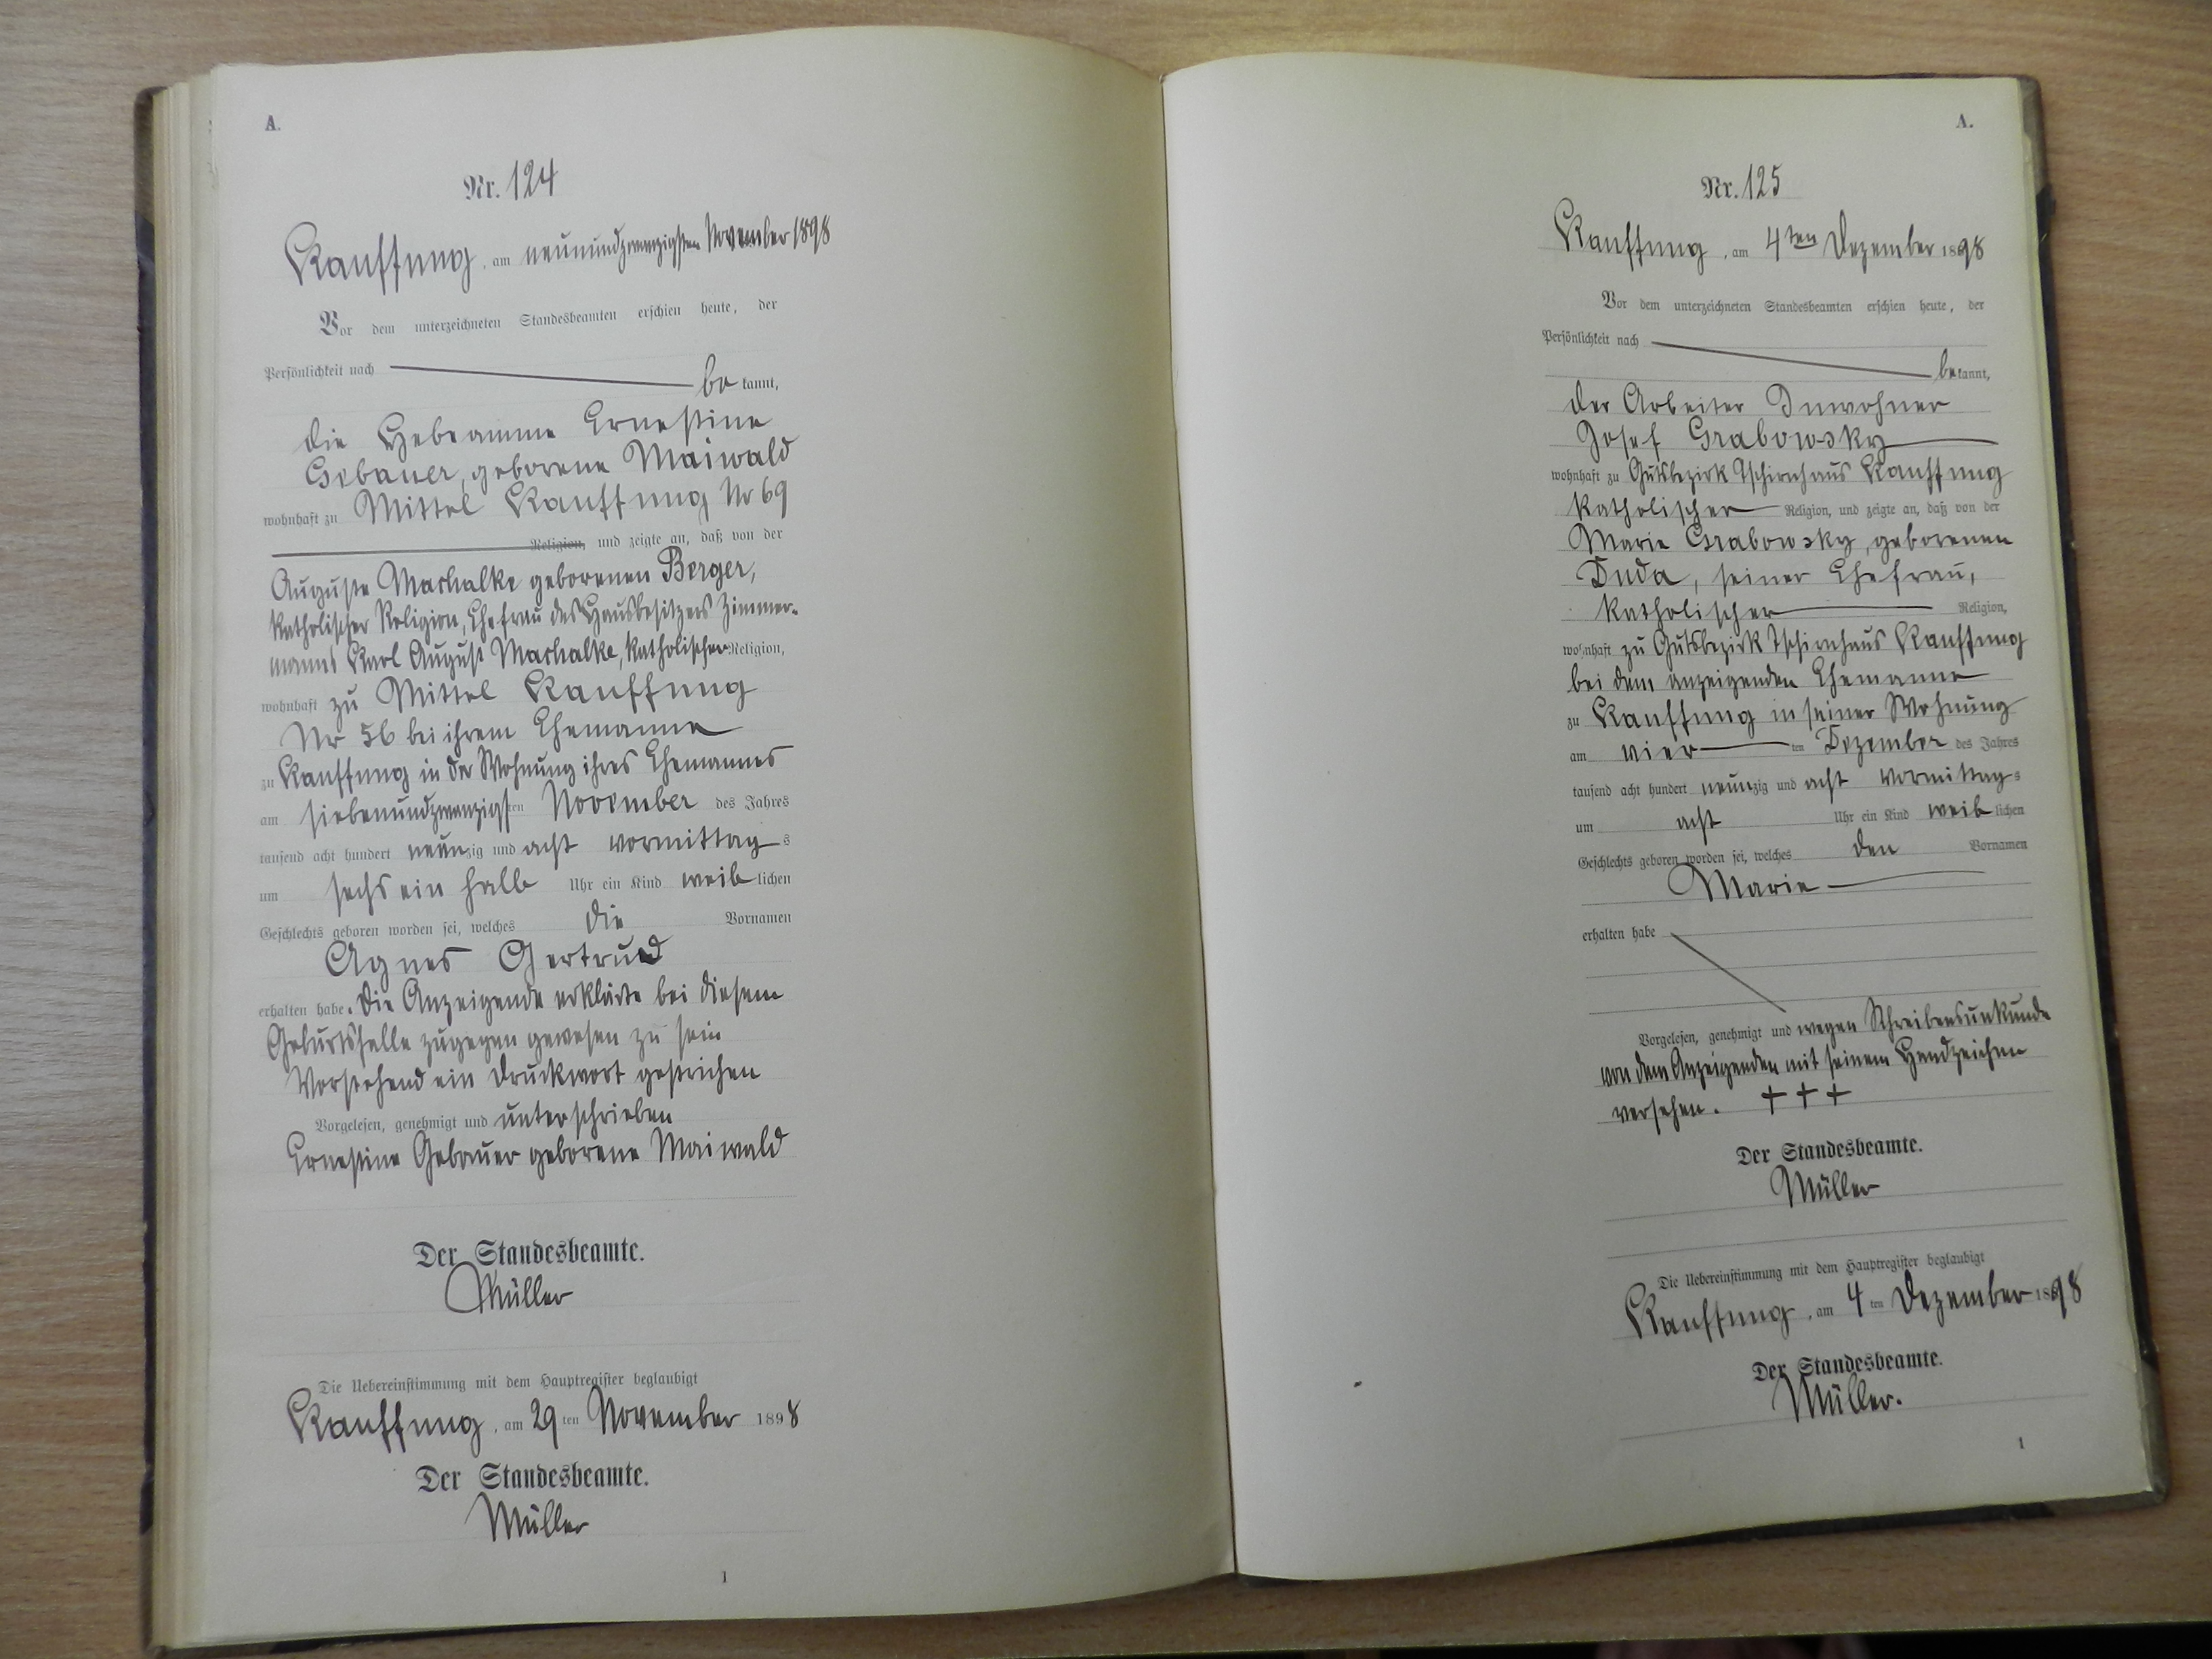 A.
Nr. 124
Kauffung, am neunundzwanzigsten November 1898
Vor dem unterzeichneten Standesbeamten erschien heute, der
Persönlichkeit nach
be kannt,
die Hebeamme Ernestine
Gebauer, geborene Maiwald
wohnhaft zu Mittel Kauffung Nr 69
Religion, und zeigte an, daß von der
Auguste Machalke geborenen Berger,
katholischer Religion, Ehefrau des Hausbesitzers Zimmer-
manns Karl August Machalke, katholischer Religion,
wohnhaft zu Mittel Kauffung
Nr 56 bei ihrem Ehemanne
zu Kauffung in der Wohnung ihres Ehemannes
am siebenundzwanzigsten November des Jahres
tausend acht hundert neunzig und acht vormittags
um sechs ein halb Uhr ein Kind weiblichen
Geschlechts geboren worden sei, welches die Vornamen
Agnes Gertrud
erhalten habe. Die Anzeigende erklärte bei diesem
Geburtsfalle zugegen gewesen zu sein
Vorstehend ein Druckwort gestrichen
Vorgelesen, genehmigt und unterschrieben
Ernestine Gebauer geborene Maiwald
Der Standesbeamte.
Müller
Die Uebereinstimmung mit dem Hauptregister beglaubigt
Kauffung, am 29ten November 1898
Der Standesbeamte.
Müller
1
A.
Nr. 125
Kauffung, am 4ten Dezember 1898
Vor dem unterzeichneten Standesbeamten erschien heute, der
Persönlichkeit nach
bekannt,
der Arbeiter Inwohner
Josef Grabowsky
wohnhaft zu Gutsbezirk Tschirnhaus Kauffung
katholischer Religion, und zeigte an, daß von der
Marie Grabowsky, geborenen
Duda, seiner Ehefrau,
katholischer Religion,
wohnhaft zu Gutsbezirk Tschirnhaus Kauffung
bei dem anzeigenden Ehemanne
zu Kauffung in seiner Wohnung
am vierten Dezember des Jahres
tausend acht hundert neunzig und acht vormittags
um acht Uhr ein Kind weiblichen
Geschlechts geboren worden sei, welches den Vornamen
Marie
erhalten habe
Vorgelesen, genehmigt und wegen Schreibensunkunde
von dem Anzeigenden mit seinem Handzeichen
versehen. +++
Der Standesbeamte.
Müller
Die Uebereinstimmung mit dem Hauptregister beglaubigt
Kauffung, am 4ten Dezember 1898
Der Standesbeamte.
Müller.
1